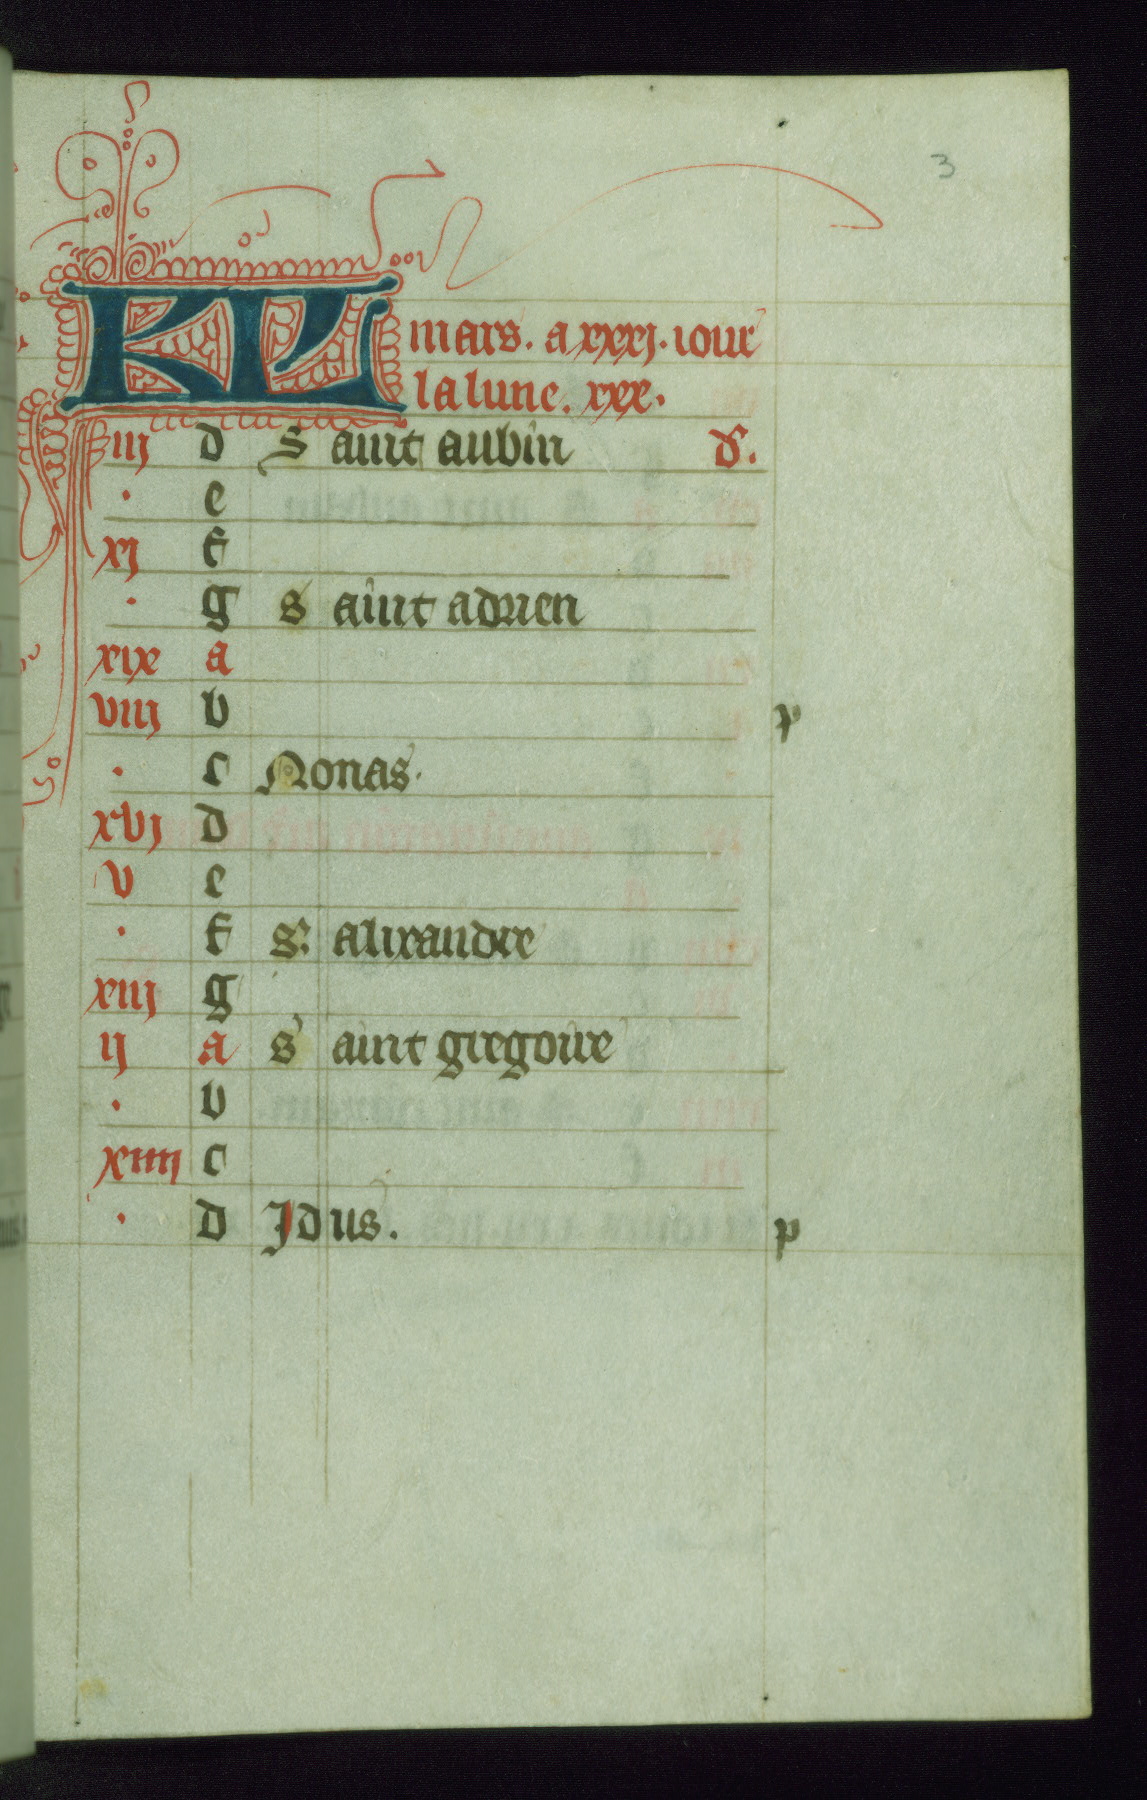 3
KL mars. a xxxj. iour
la lune. xxx.
iij d Saint aubin d.
. e
xj f
. g saint adrien
xix a
viij b p
. c Nonas.
xvj d
v e
. f s. alixandre
xiij g
ij a saint gregoire
. b
xiiij c
. d Jdus. p